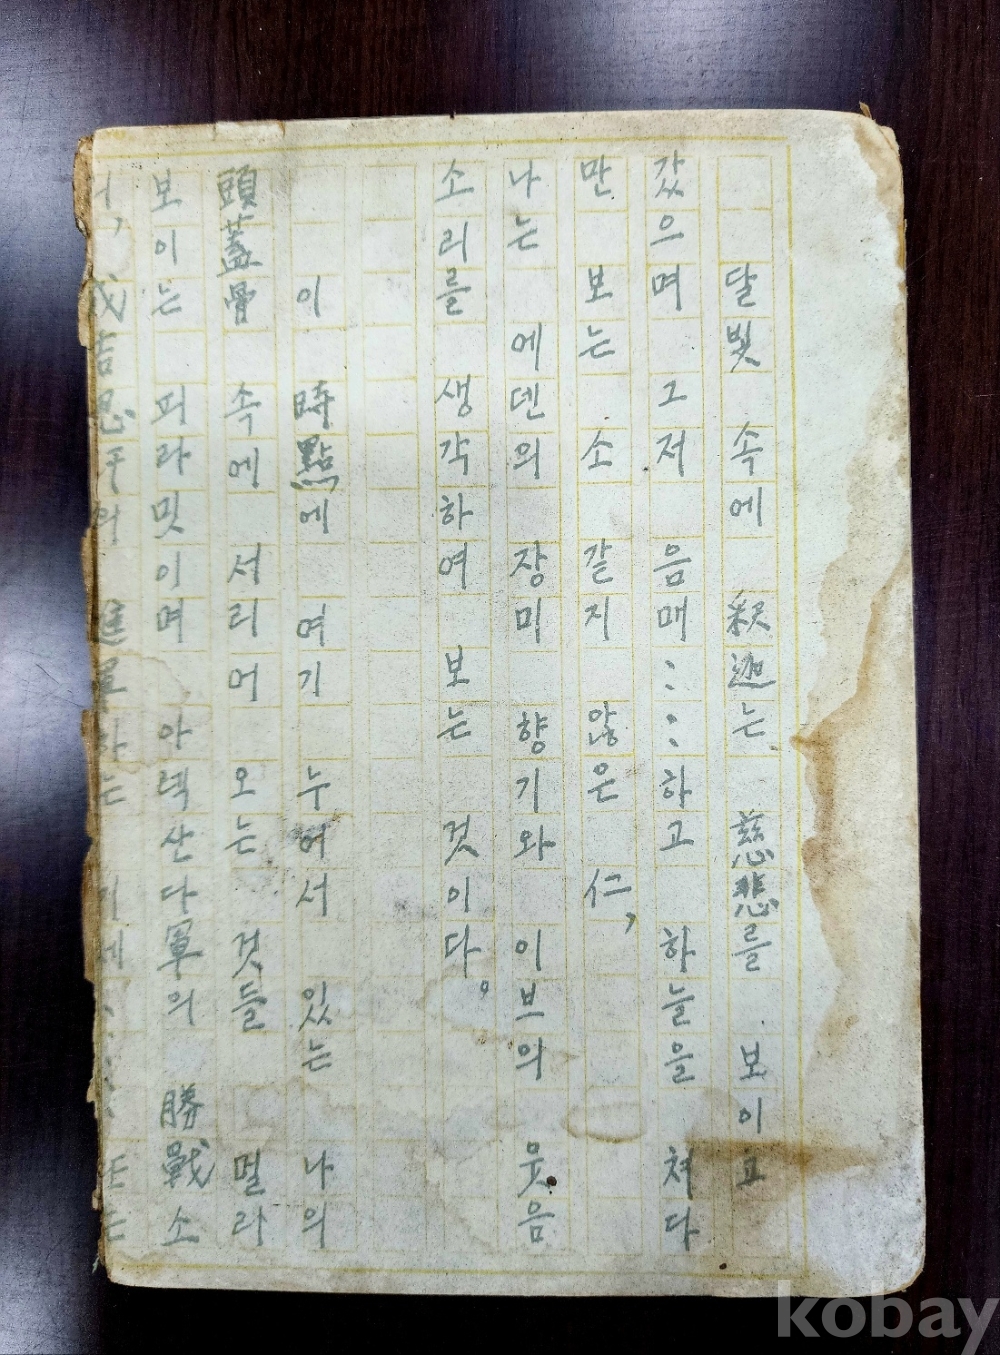 달빛 속에 釈迦는 慈悲를 보이고
갔으며 그저 음매……하고 하늘을 쳐다
만 보는 소 같지 않은 仁,
나는 에덴의 장미 향기와 이브의 웃음
소리를 생각하여 보는 것이다。
이 時點에 여기 누어서 있는 나의
頭蓋骨 속에 서리어 오는 것들 멀라
보이는 피라밋이며 아렉산다軍의 勝戰소
kobay